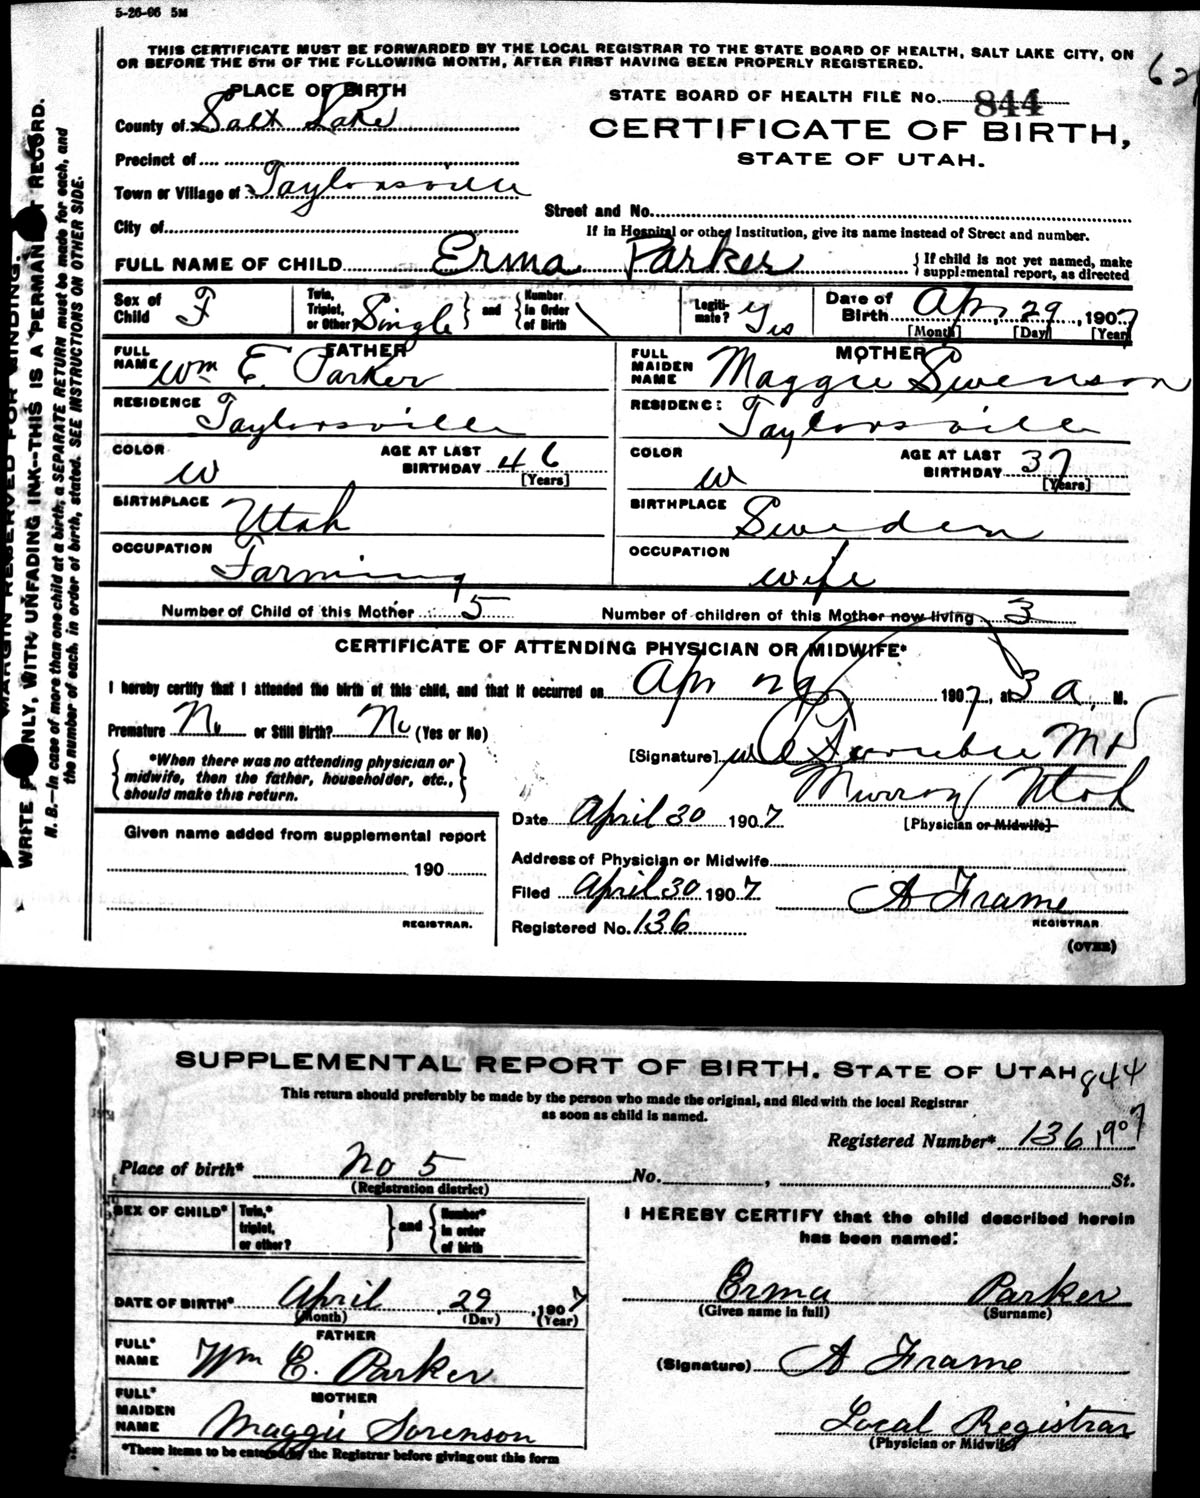 5-26-06 5M
THIS CERTIFICATE MUST BE FORWARDED BY THE LOCAL REGISTRAR TO THE STATE BOARD OF HEALTH, SALT LAKE CITY, ON
OR BEFORE THE 5TH OF THE FOLLOWING MONTH, AFTER FIRST HAVING BEEN PROPERLY REGISTERED.
PLACE OF BIRTH
STATE BOARD OF HEALTH FILE No. 844
County of Salt Lake
CERTIFICATE OF BIRTH,
STATE OF UTAH.
Precinct of
Town or Village of Taylorsville
Street and No.
City of
If in Hospital or other Institution, give its name instead of Street and number.
FULL NAME OF CHILD Erma Parker
{If child is not yet named, make
supplemental report, as directed
Sex of Child F
Twin, Triplet, or Other Single } and { Number in Order of Birth
Legiti-mate? Yes
Date of Birth Apr, 29, 1907
[Month] [Day] [Year]
FATHER
FULL NAME Wm E. Parker
RESIDENCE Taylorsville
COLOR W
AGE AT LAST BIRTHDAY 46
[Years]
BIRTHPLACE Utah
OCCUPATION Farming
MOTHER
FULL MAIDEN NAME Maggie Swenson
RESIDENCE Taylorsville
COLOR W
AGE AT LAST BIRTHDAY 37
[Years]
BIRTHPLACE Sweden
OCCUPATION wife
Number of Child of this Mother 5
Number of children of this Mother now living 3
CERTIFICATE OF ATTENDING PHYSICIAN OR MIDWIFE*
I hereby certify that I attended the birth of this child, and that it occurred on Apr 29 1907, at 3 a, M.
Premature No or Still Birth? No (Yes or No)
[Signature] MD
Murray Utah
[Physician or Midwife]
{*When there was no attending physician or
midwife, then the father, householder, etc.,
should make this return.}
Date April 30 1907
Given name added from supplemental report
190
REGISTRAR.
Address of Physician or Midwife
Filed April 30 1907 A Frame
REGISTRAR
Registered No. 136
(OVER)
MARGIN RESERVED FOR BINDING.
WRITE PLAINLY, WITH UNFADING INK—THIS IS A PERMANENT RECORD.
N. B.—In case of more than one child at a birth, a SEPARATE RETURN must be made for each, and
the number of each, in order of birth, stated. SEE INSTRUCTIONS ON OTHER SIDE.
SUPPLEMENTAL REPORT OF BIRTH. STATE OF UTAH 844
This return should preferably be made by the person who made the original, and filed with the local Registrar
as soon as child is named.
Registered Number* 136 1907
Place of birth* No 5 No. , St.
(Registration district)
SEX OF CHILD* Twin,* triplet, or other? } and { Number* in order of birth
DATE OF BIRTH* April, 29, 1907
(Month) (Day) (Year)
FATHER
FULL* NAME Wm E. Parker
MOTHER
FULL* MAIDEN NAME Maggie Sorenson
*These items to be entered by the Registrar before giving out this form
I HEREBY CERTIFY that the child described herein
has been named:
Erma Parker
(Given name in full) (Surname)
(Signature) A Frame
Local Registrar
(Physician or Midwife)